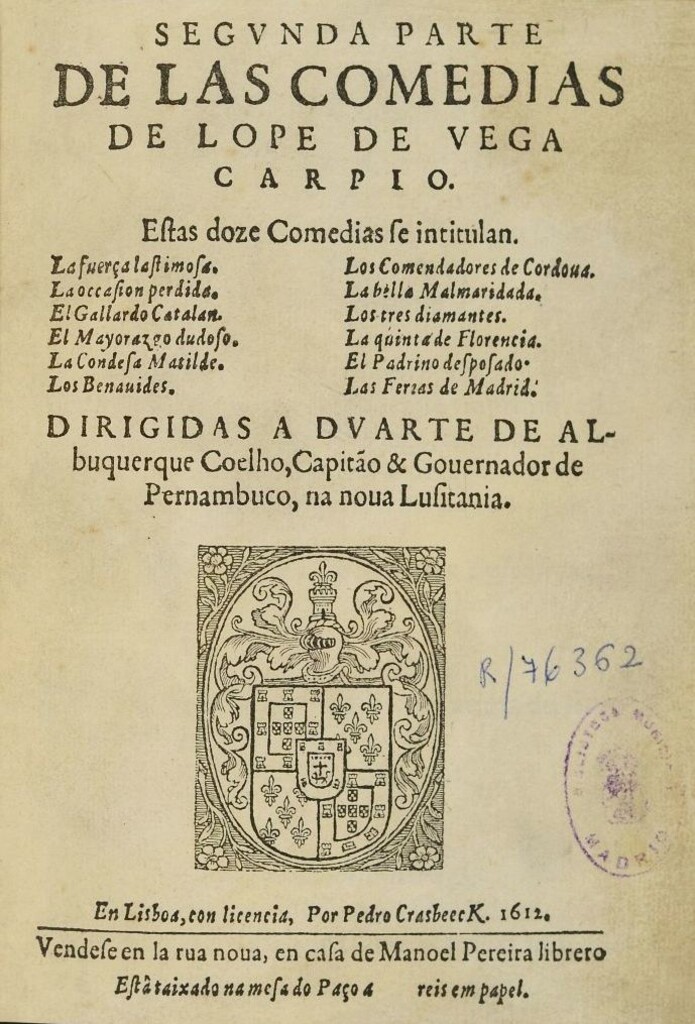 SEGVNDA PARTE
DE LAS COMEDIAS
DE LOPE DE VEGA
CARPIO.
Eſtas doze Comedias ſe intitulan.
La fuerça laſtimoſa.
La occaſion perdida.
El Gallardo Catalan.
El Mayorazgo dudoſo.
La Condeſa Matilde.
Los Benauides.
Los Comendadores de Cordoua.
La bella Malmaridada.
Los tres diamantes.
La quinta de Florencia.
El Padrino deſpoſado.
Las Ferias de Madrid.
DIRIGIDAS A DVARTE DE AL-
buquerque Coelho, Capitão & Gouernador de
Pernambuco, na noua Luſitania.
R/76362
BIBLIOTECA MUNICIPAL
MADRID
En Lisboa, con licencia, Por Pedro CrasbeecK. 1612.
Vendeſe en la rua noua, en caſa de Manoel Pereira librero
Eſtâ taixado na meſa do Paço a reis em papel.